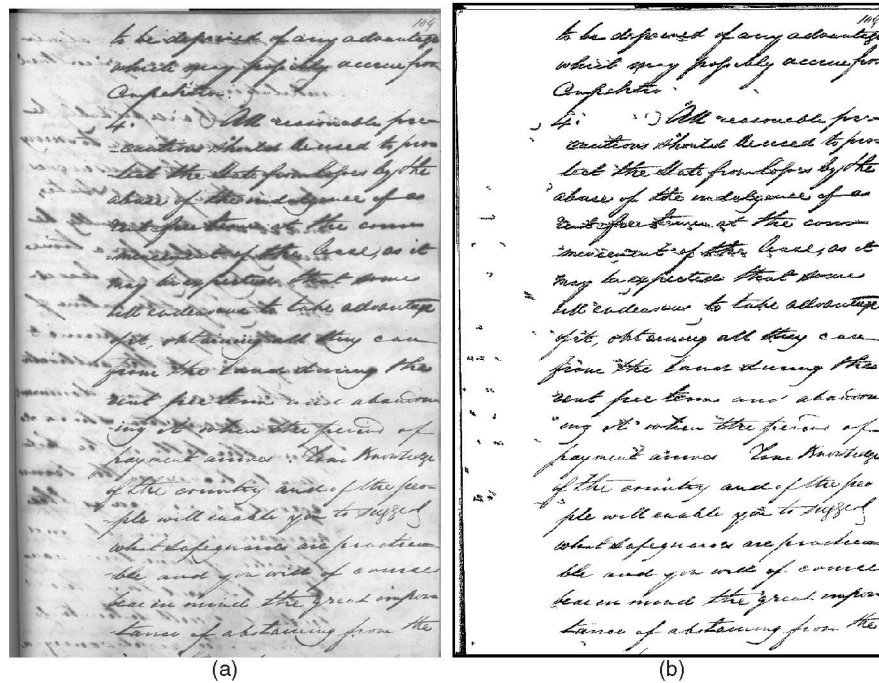 109
to be deprived of any advantage
which may possibly accrue from
Competition.
4. All reasonable pre-
-cautions should be used to pro-
-tect the State from losses by the
abuse of the indulgence of a
rent free tenure at the com-
-mencement of the lease, as it
may be expected that some
will endeavour to take advantage
of it, obtaining all they can
from the land during the
rent free term and abandon-
-ing it when the period of
payment arrives. Your Knowledge
of the country and of the peo-
-ple will enable you to suggest
what safeguards are practica-
-ble and you will of course
bear in mind the great impor-
-tance of abstaining from the
(a)
109
to be deprived of any advantage
which may possibly accrue from
Competition
4. All reasonable pre-
cautions should be used to pro-
tect the State from losses by the
abuse of the indulgence of a
rent free tenure at the com-
-mencement of the lease, as it
may be expected that some
will endeavour to take advantage
of it, obtaining all they can
from the land during the
rent free term and abandon-
-ing it when the period of
payment arrives Your Knowledge
of the country and of the peo
-ple will enable you to suggest
what safeguards are practica-
ble and you will of course
bear in mind the great impor-
tance of abstaining from the
(b)